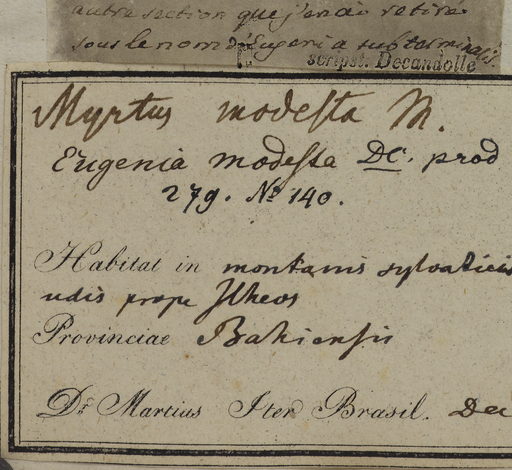 autre section que j'en ai retiré
sous le nom d'Eugenia subterminalis.
scripst. Decandolle
Myrtus modesta M.
Eugenia modesta DC. prod
279. No 140.
Habitat in montanis sylvaticis
udis prope Ilheos
Provinciae Bahiensis
Dr. Martius Iter Brasil. Dec